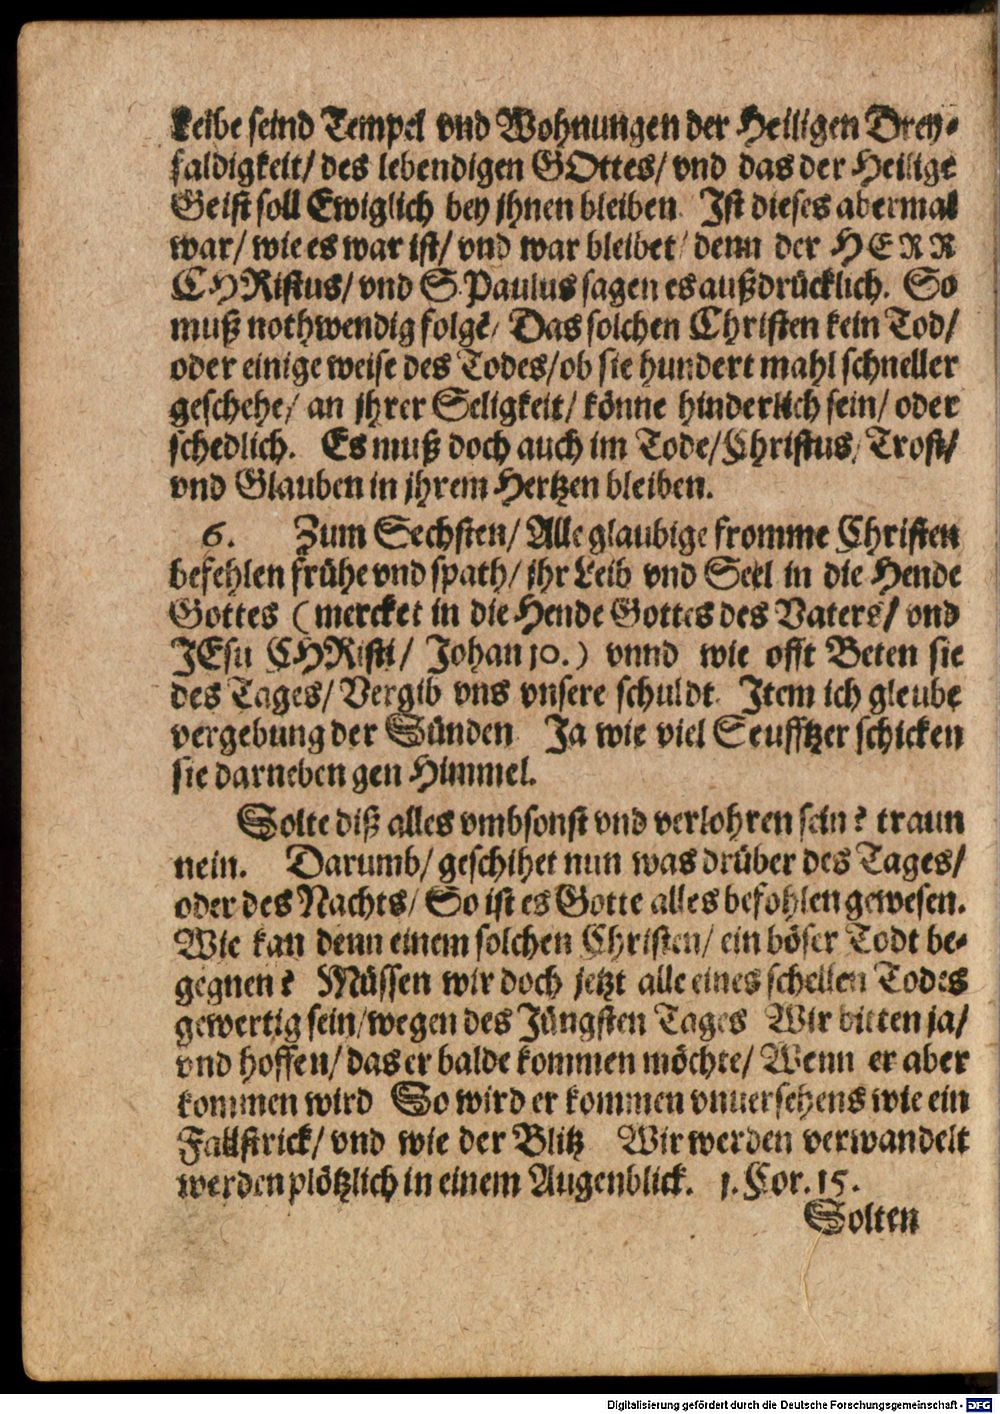 Leibe seind Tempel vnd Wohnungen der Heiligen Drey-
faldigkeit/ des lebendigen GOttes/ vnd das der Heilige
Geist soll Ewiglich bey jhnen bleiben. Ist dieses abermal
war/ wie es war ist/ vnd war bleibet/ denn der HERR
CHRistus/ vnd S. Paulus sagen es außdrücklich. So
muß nothwendig folgē/ Das solchen Christen kein Tod/
oder einige weise des Todes/ ob sie hundert mahl schneller
geschehe/ an jhrer Seligkeit/ könne hinderlich sein/ oder
schedlich. Es muß doch auch im Tode/ Christus/ Trost/
vnd Glauben in jhrem Hertzen bleiben.
6. Zum Sechsten/ Alle glaubige fromme Christen
befehlen frühe vnd spath/ jhr Leib vnd Seel in die Hende
Gottes (mercket in die Hende Gottes des Vaters/ vnd
JEsu CHRisti/ Johan 10.) vnnd wie offt Beten sie
des Tages/ Vergib vns vnsere schuldt. Item ich gleube
vergebung der Sünden Ja wie viel Seufftzer schicken
sie darneben gen Himmel.
Solte diß alles vmbsonst vnd verlohren sein? traun
nein. Darumb/ geschihet nun was drüber des Tages/
oder des Nachts/ So ist es Gotte alles befohlen gewesen.
Wie kan denn einem solchen Christen/ ein böser Todt be-
gegnen? Müssen wir doch jetzt alle eines schellen Todes
gewertig sein/ wegen des Jüngsten Tages Wir bitten ja/
vnd hoffen/ das er balde kommen möchte/ Wenn er aber
kommen wird So wird er kommen vnuersehens wie ein
Fallstrick/ vnd wie der Blitz Wir werden verwandelt
werden plötzlich in einem Augenblick. 1. Cor. 15.
Solten
Digitalisierung gefördert durch die Deutsche Forschungsgemeinschaft - DFG